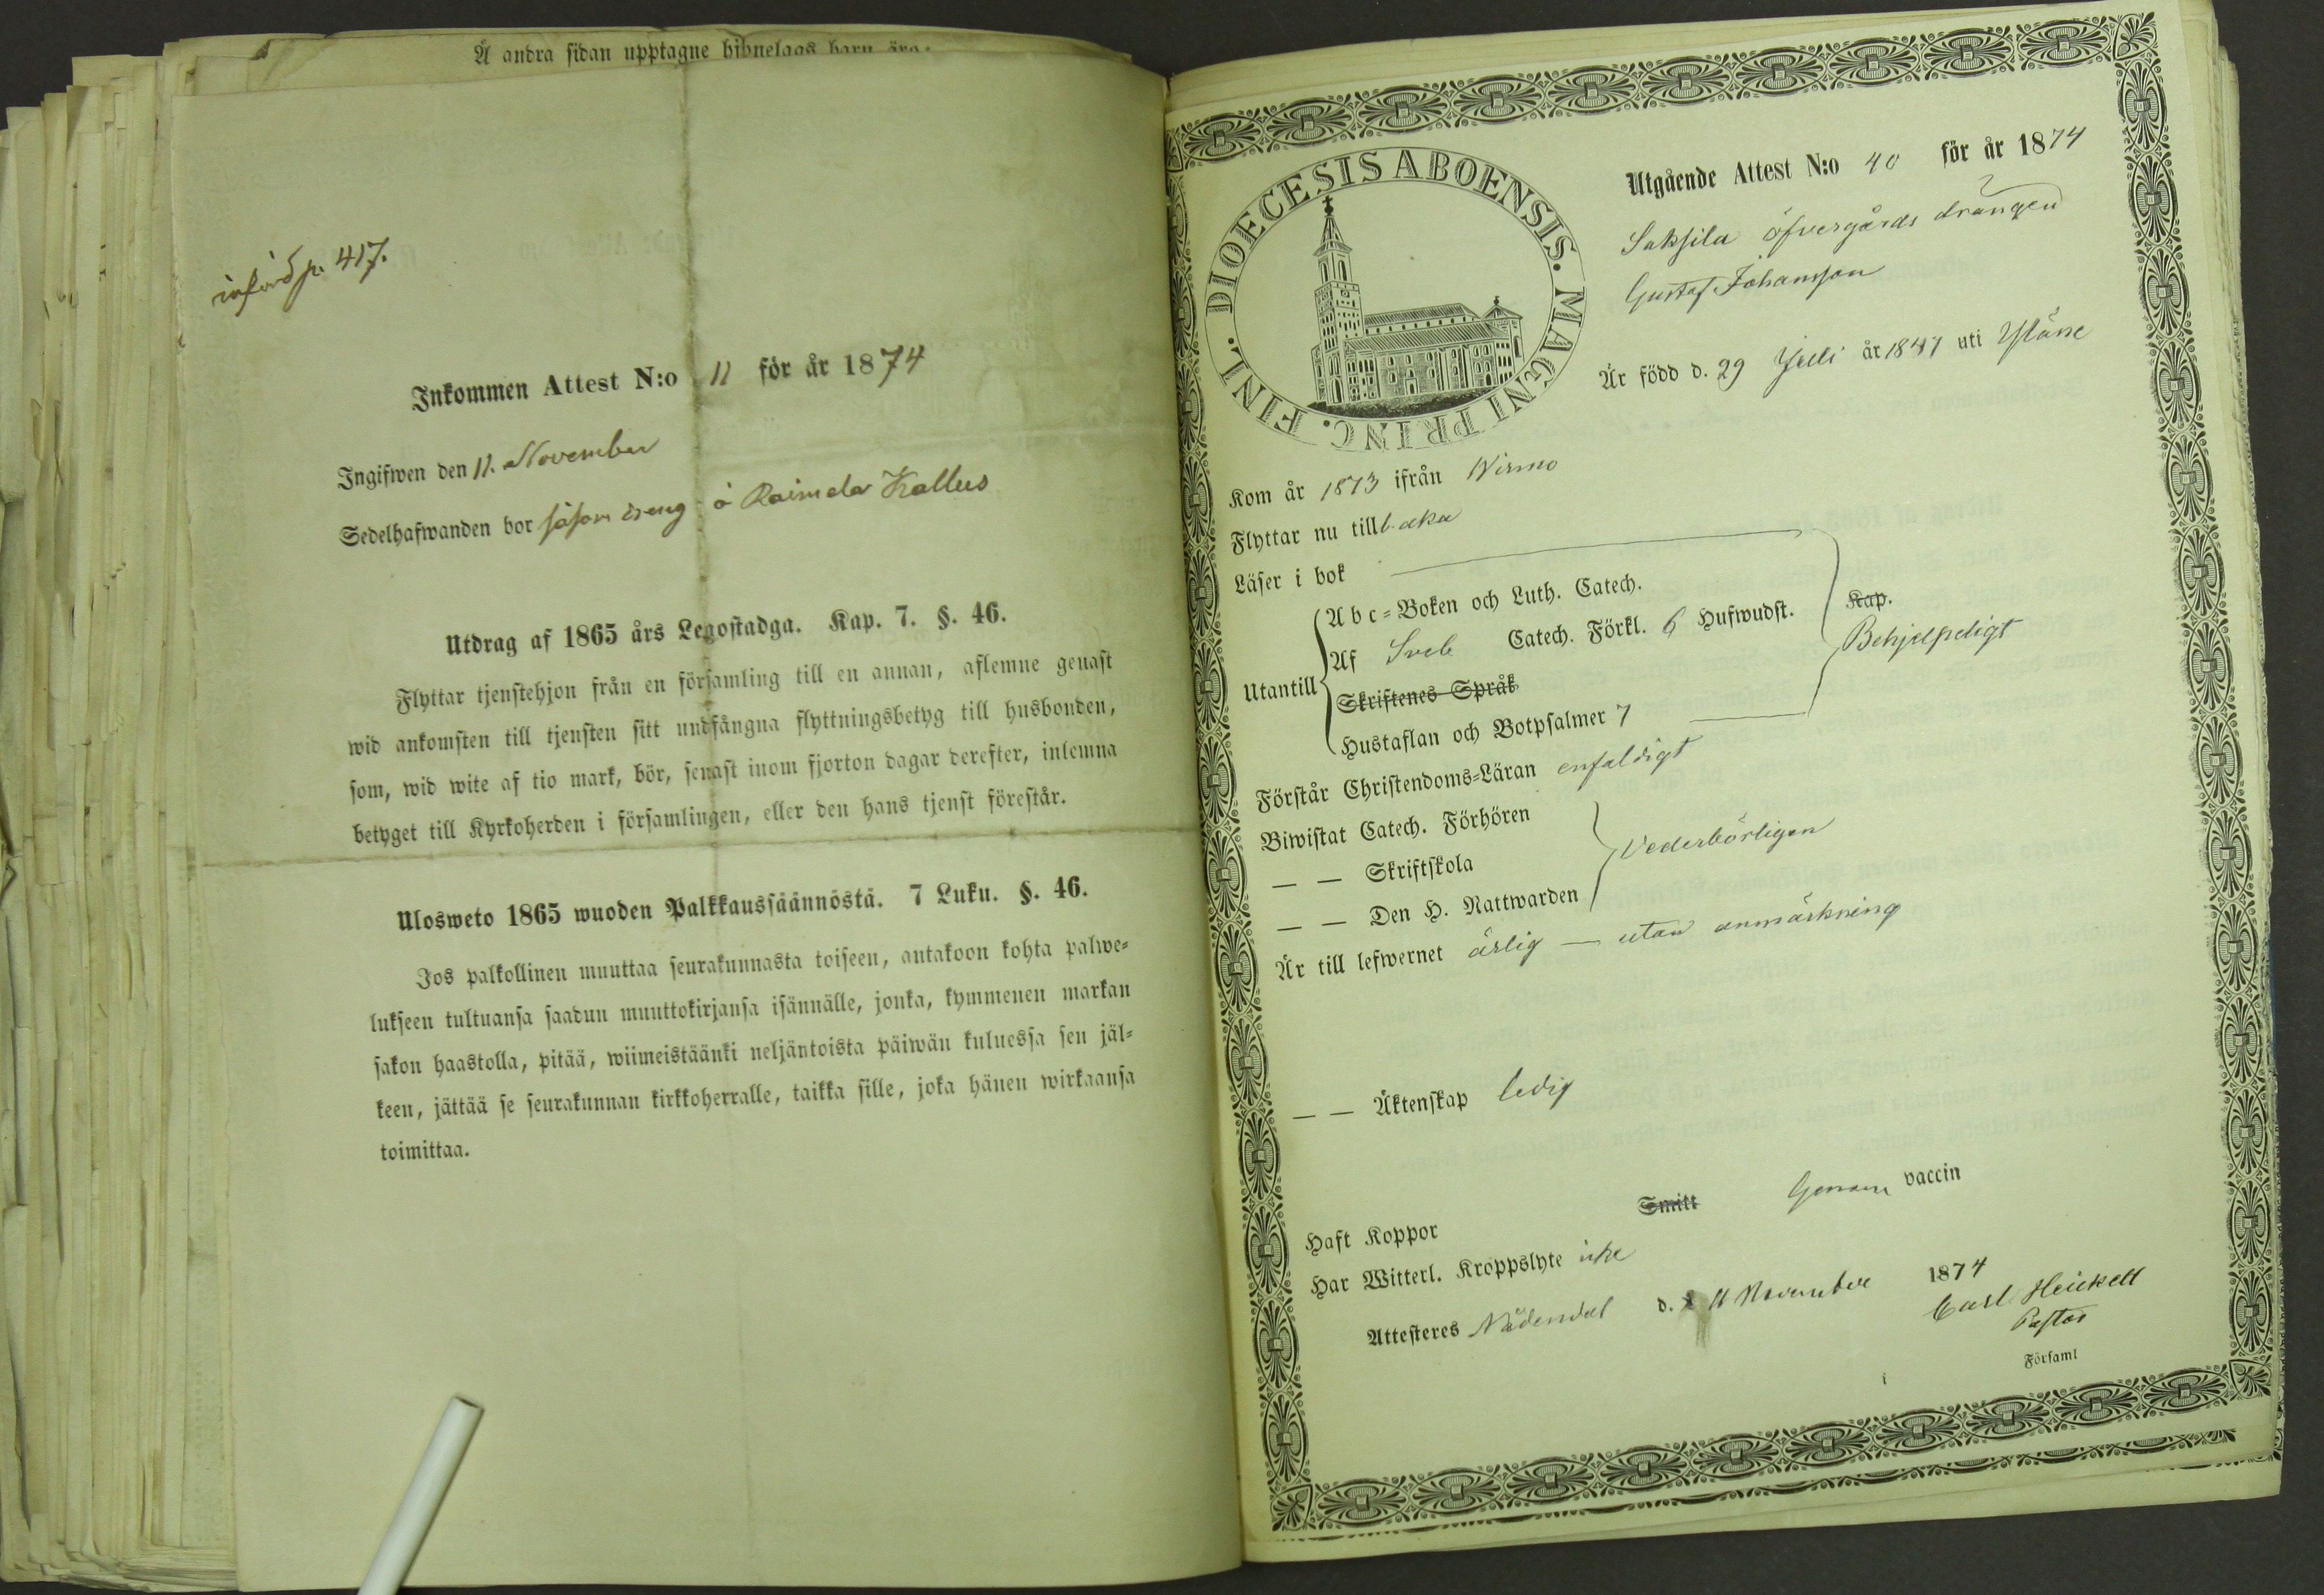 Å andra sidan upptagne hionelags barn äro:
införd p. 417.
Inkommen Attest N:o 11 för år 1874
Ingifwen den 11. November
Sedelhafwanden bor såsom dreng å Raimela Kallus
Utdrag af 1865 års Legostadga. Kap. 7. §. 46.
Flyttar tjenstehjon från en församling till en annan, aflemne genast
wid ankomsten till tjensten sitt undfångna flyttningsbetyg till husbonden,
som, wid wite af tio mark, bör, senast inom fjorton dagar derefter, inlemna
betyget till Kyrkoherden i församlingen, eller den hans tjenst förestår.
Ulosweto 1865 wuoden Palkkaussäännöstä. 7 Luku. §. 46.
Jos palkollinen muuttaa seurakunnasta toiseen, antakoon kohta palwe-
lukseen tultuansa saadun muuttokirjansa isännälle, jonka, kymmenen markan
sakon haastolla, pitää, wiimeistäänki neljäntoista päiwän kuluessa sen jäl-
keen, jättää se seurakunnan kirkkoherralle, taikka sille, joka hänen wirkaansa
toimittaa.
DIOECESIS ABOENSIS. MAGNI PRINC. FINL.
Utgående Attest N:o 40 för år 1874
Saksila öfvergårds drängen
Gustaf Johansson
Är född d. 29 Juli år 1847 uti Yläne
Kom år 1873 ifrån Wirmo
Flyttar nu tillbaka
Läser i bok
Utantill
Abc-Boken och Luth. Catech.
Af Sveb Catech. Förkl. 6 Hufwudst.
Skriftenes Språk
Hustaflan och Botpsalmer 7
Kap.
Behjelpeligt
Förstår Christendoms-Läran enfaldigt
Biwistat Catech. Förhören
— — Skriftskola
— — Den H. Nattwarden
Vederbörligen
Är till lefwernet ärlig — utan anmärkning
— — Äktenskap ledig
Haft Koppor Smitt Genom vaccin
Har Witterl. Kroppslyte icke
Attesteres Nådendal d. 11 November 1874
Carl Heickell
Pastor
i Församl